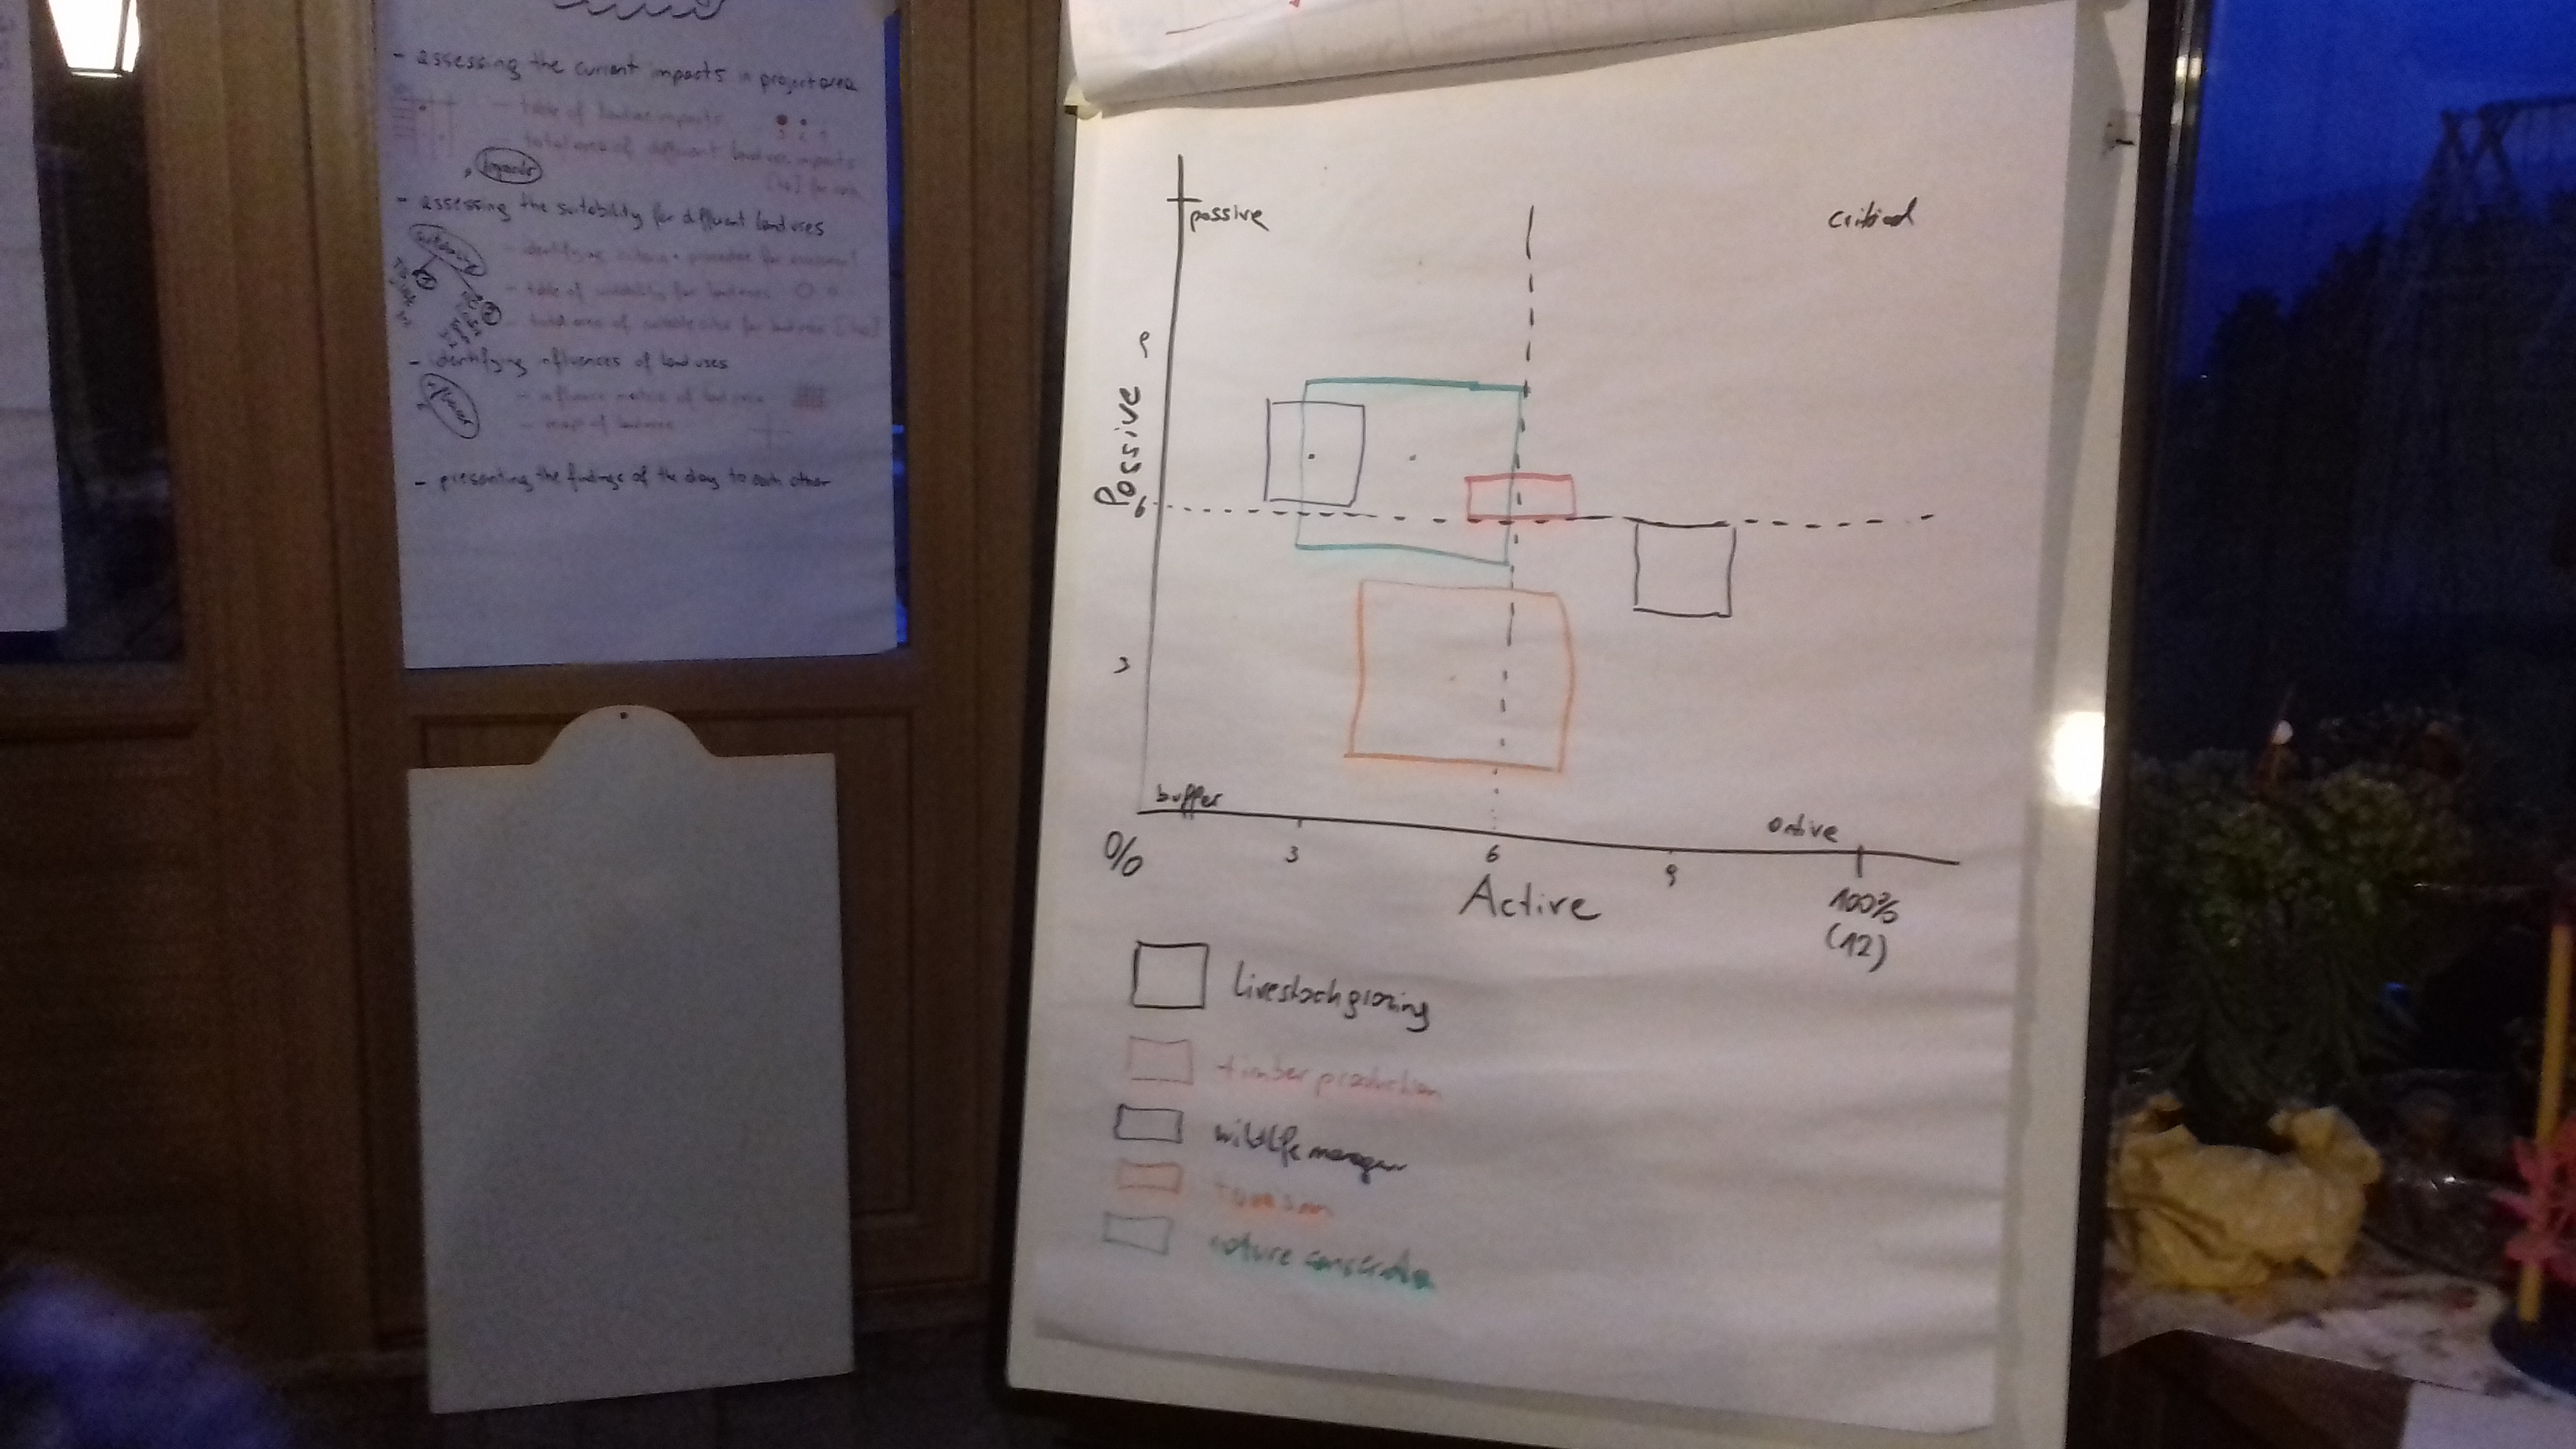 - assessing the current impacts in project area
- table of land use impacts
3 2 1
- total area of different land use impacts
[ha] for each
impacts
- assessing the suitability for different land uses
suitability
- identifying criteria + procedure for assessment
- table of suitability for land uses
- total area of suitable sites for land uses [ha]
- identifying influences of land uses
influences
- influence matrix of land uses
- map of land uses
- presenting the findings of the day to each other
passive
critical
9
Passive
6
3
buffer
active
0%
3
6
9
100%
(12)
Active
livestock grazing
timber production
wildlife
tourism
nature